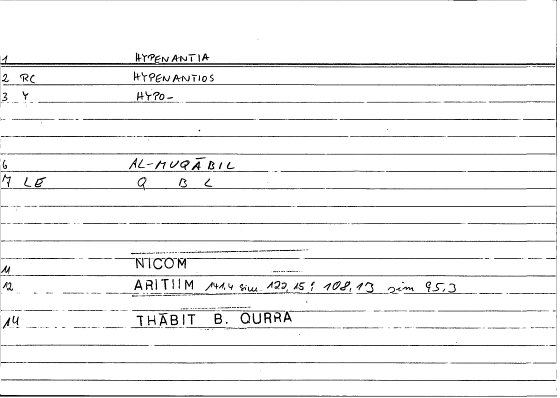 1 HYPENANTIA
2 RC HYPENANTIOS
3 Y HYPO-
6 AL-MUQĀBIL
7 LE Q B L
11 NICOM
12 ARITHM 141,4 sim. 122,15; 108,13 sim 95,3
14 THĀBIT B. QURRA